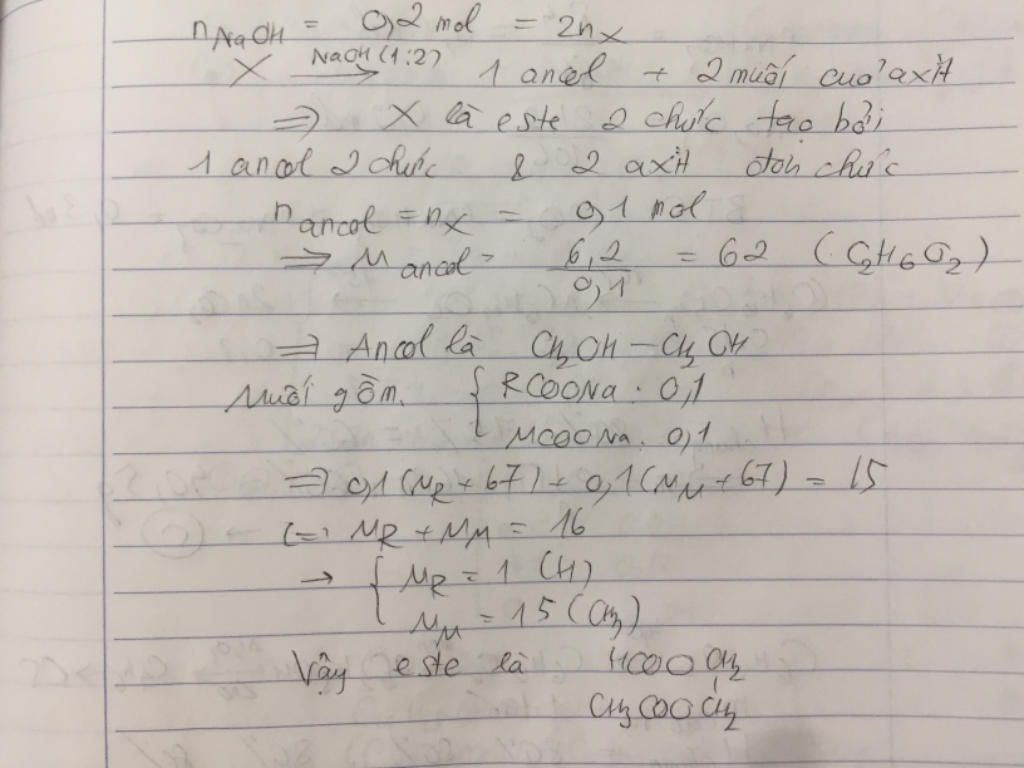 nNaOH = 0,2 mol = 2nX
X NaOH (1:2) → 1 ancol + 2 muối của axit
⇒ X là este 2 chức tạo bởi
1 ancol 2 chức & 2 axit đơn chức
nancol = nX = 0,1 mol
⇒ Mancol = 6,2/0,1 = 62 (C2H6O2)
⇒ Ancol là CH2OH – CH2OH
Muối gồm. { RCOONa : 0,1
MCOONa : 0,1
⇒ 0,1(MR + 67) + 0,1(MM + 67) = 15
(=) MR + MM = 16
→ { MR = 1 (H)
MM = 15 (CH3)
Vậy este là HCOOCH2
CH3COOCH2